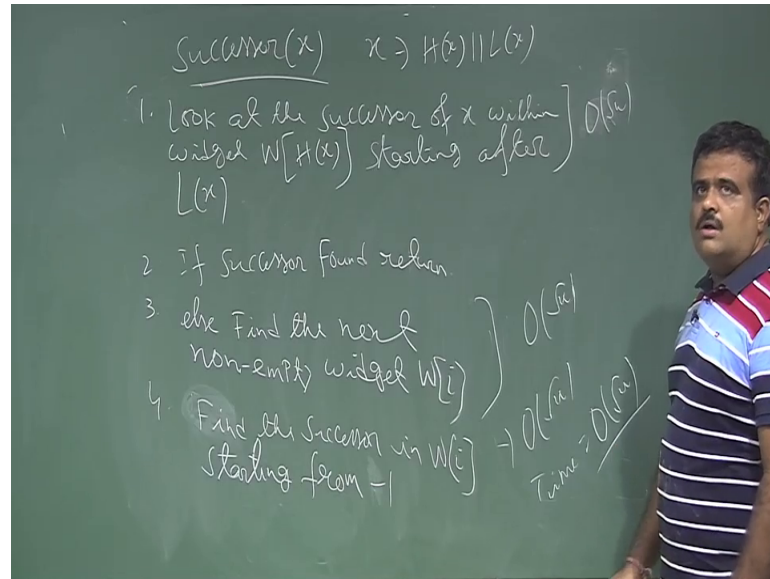 Successor(x) x → H(x)||L(x)
1. Look at the successor of x within
widget W[H(x)] starting after
L(x)
O(√u)
2 If successor found return.
3. else Find the next
non-empty widget W[i]
O(√u)
4. Find the successor in W[i] → O(√u)
starting from -1
Time = O(√u)